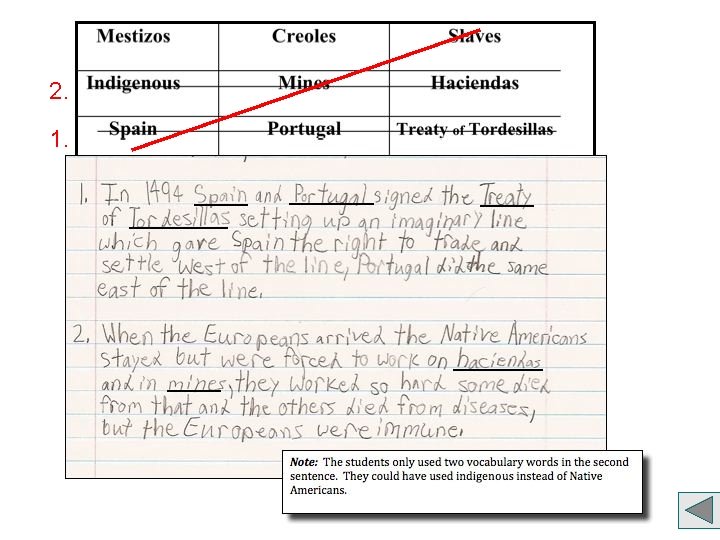 Mestizos Creoles Slaves
2. Indigenous Mines Haciendas
1. Spain Portugal Treaty of Tordesillas
1. In 1494 Spain and Portugal signed the Treaty
of Tordesillas setting up an imaginary line
which gave Spain the right to trade and
settle west of the line, Portugal did the same
east of the line.
2. When the Europeans arrived the Native Americans
stayed but were forced to work on haciendas
and in mines, they worked so hard some died
from that and the others died from diseases,
but the Europeans were immune.
Note: The students only used two vocabulary words in the second
sentence. They could have used indigenous instead of Native
Americans.